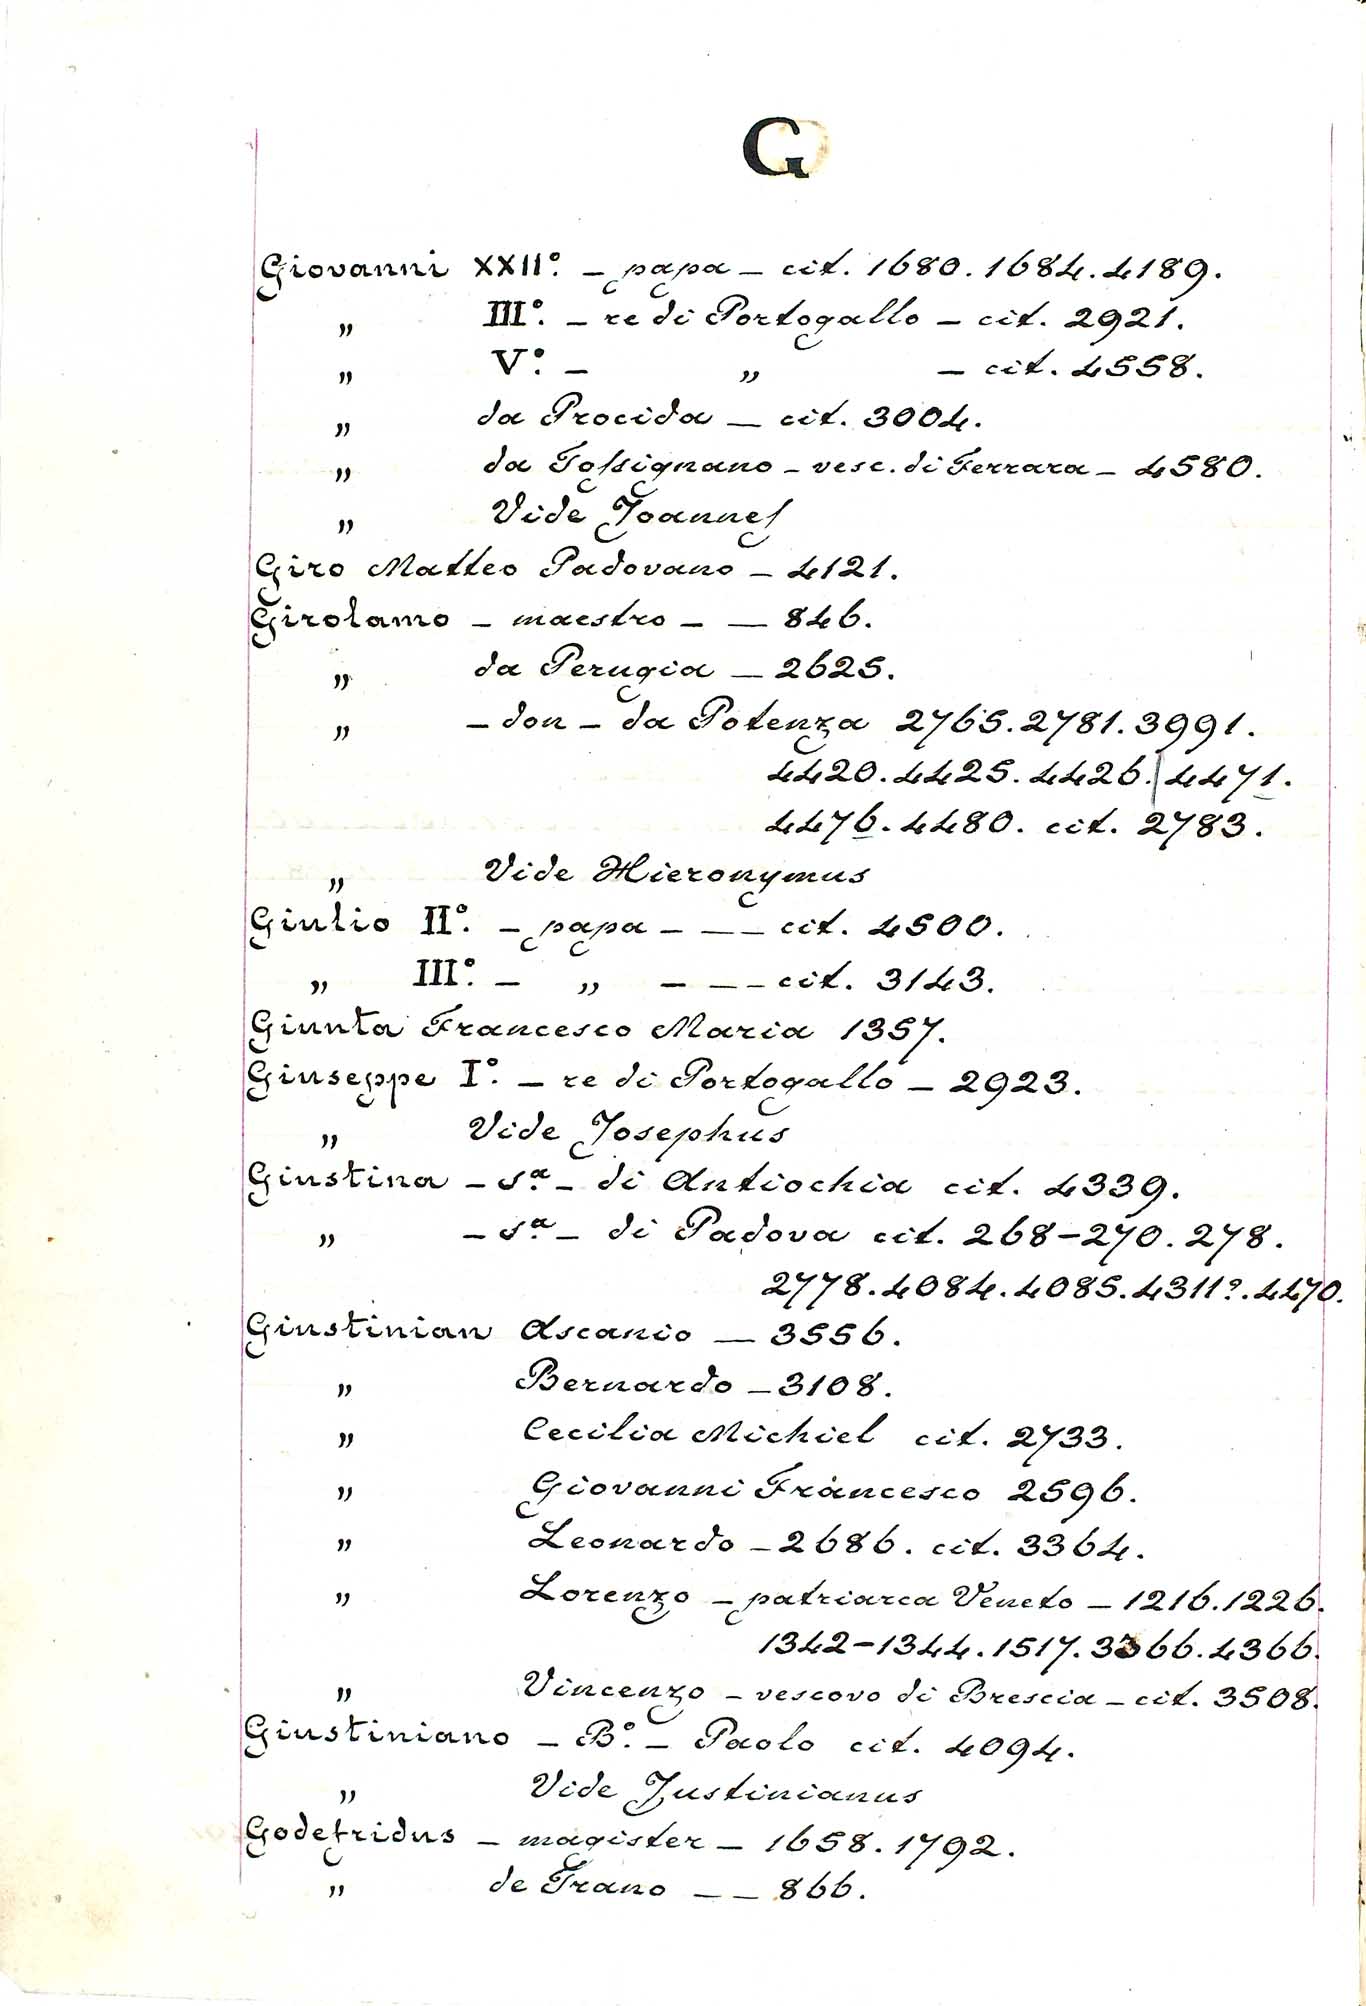 G
Giovanni XXII°. – papa – cit. 1680. 1684. 4189.
„ III°. – re di Portogallo – cit. 2921.
„ V°. – „ – cit. 4558.
„ da Procida – cit. 3004.
„ da Toſsignano – vesc. di Ferrara – 4580.
„ Vide Joannes
Giro Matteo Padovano – 4121.
Girolamo – maestro – – 846.
„ da Perugia – 2625.
„ – don – da Potenza 2765. 2781. 3991.
4420. 4425. 4426. 4471.
4476. 4480. cit. 2783.
„ Vide Hieronymus
Giulio II°. – papa – – – cit. 4500.
„ III°. – „ – – – cit. 3143.
Giunta Francesco Maria 1357.
Giuseppe I°. – re di Portogallo – 2923.
„ Vide Josephus
Giustina – sª. – di Antiochia cit. 4339.
„ – sª. – di Padova cit. 268–270. 278.
2778. 4084. 4085. 4311?. 4470.
Giustinian Ascanio – 3556.
„ Bernardo – 3108.
„ Cecilia Michiel cit. 2733.
„ Giovanni Francesco 2596.
„ Leonardo – 2686. cit. 3364.
„ Lorenzo – patriarca Veneto – 1216. 1226.
1342–1344. 1517. 3366. 4366.
„ Vincenzo – vescovo di Brescia – cit. 3508.
Giustiniano – B°. – Paolo cit. 4094.
„ Vide Justinianus
Godefridus – magister – 1658. 1792.
„ de Trano – – 866.